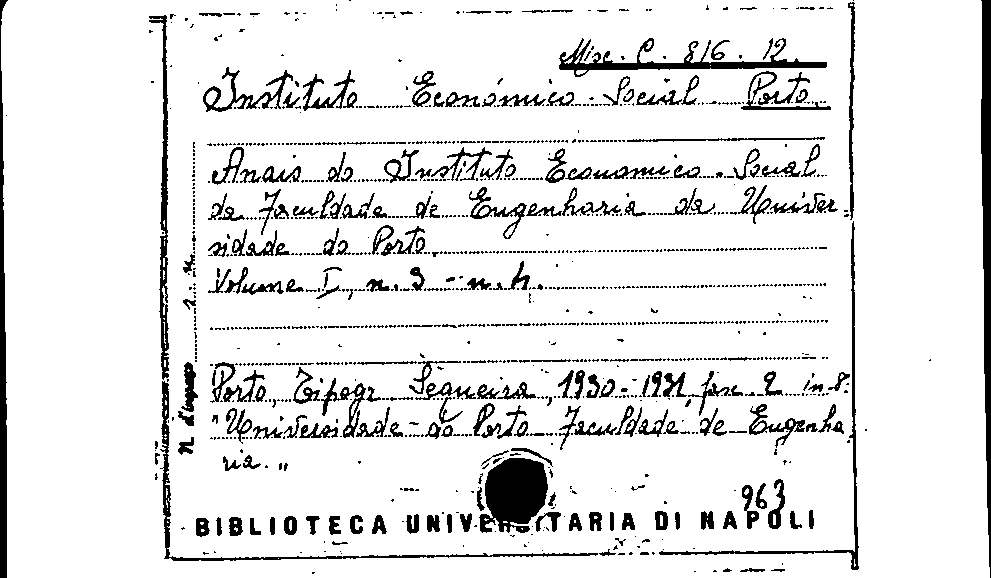 Misc. C. 816. 12.
Instituto Económico-Social. Porto.
Anais do Instituto Economico-Social
da Faculdade de Engenharia da Univer-
sidade do Porto.
Volume I, n. 3 - n. 4.
Porto, Tipogr Sequeira, 1930-1931, fasc. 2 in-8.
"Universidade do Porto Faculdade de Engenha
ria."
N. d'ingresso
963
BIBLIOTECA UNIVERSITARIA DI NAPOLI